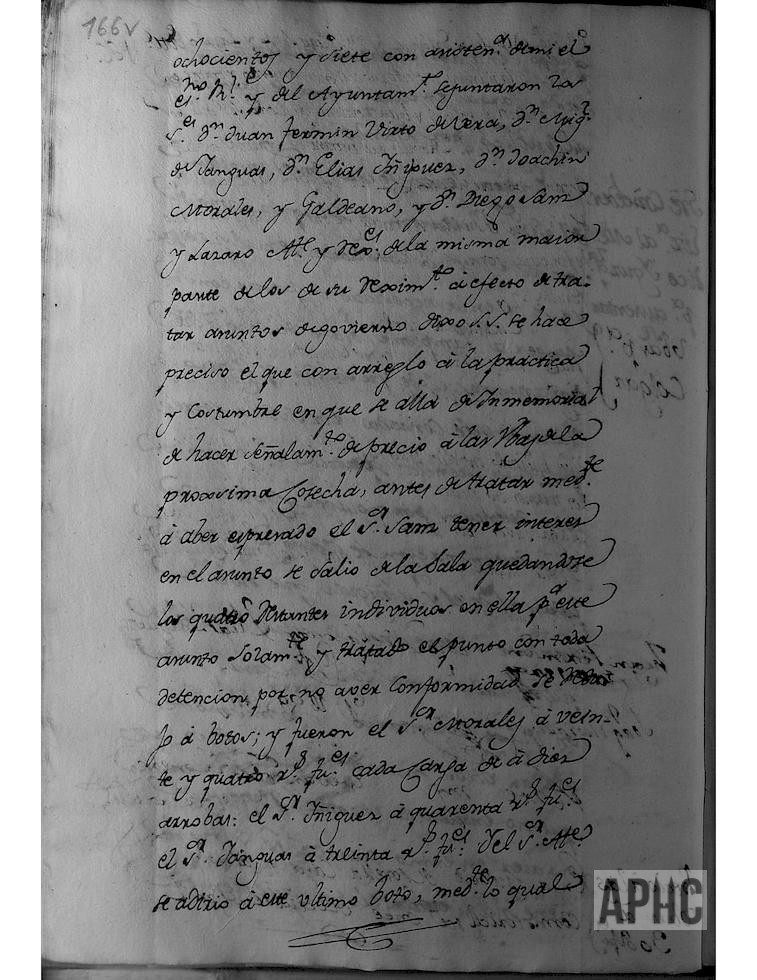 166v
ochocientos y siete con asisten.ª de mi el
es.no R.l y del Ayuntam.to se juntaron los
S.es D.n Juan fermin Virto de Vera, D.n Mig.l
de Yanguas, D.n Elias Iñiguez, D.n Joachin
Morales, y Galdeano, y D.n Diego Sanz
y Lazaro Al.e y Rex.es de la misma maior
parte de los de su Rexim.to à efecto de tra-
tar asuntos de govierno dixo S.S. se hace
preciso el que con arreglo à la practica
y Costumbre en que se alla de Inmemorial
de hacer señalam.to de precio à las Vbas de la
proxsima Cosecha, antes de tratar med.te
à aber espresado el S.or Sanz tener interes
en el asunto se Salio de la Sala quedandose
los quatro Restantes individuos en ella p.ª este
asunto solam.te y tratado el punto con toda
detencion por no aver Conformidad se Redu
jo à botos; y fueron el S.or Morales à vein-
te y quatro r.s fu.es cada Carga de à diez
arrobas: el S.or Iñiguez à quarenta r.s fu.es
el S.or Yanguas à treinta r.s fu.es Y el S.or Al.e
se adirio à este vltimo boto, med.te lo qual
APHC